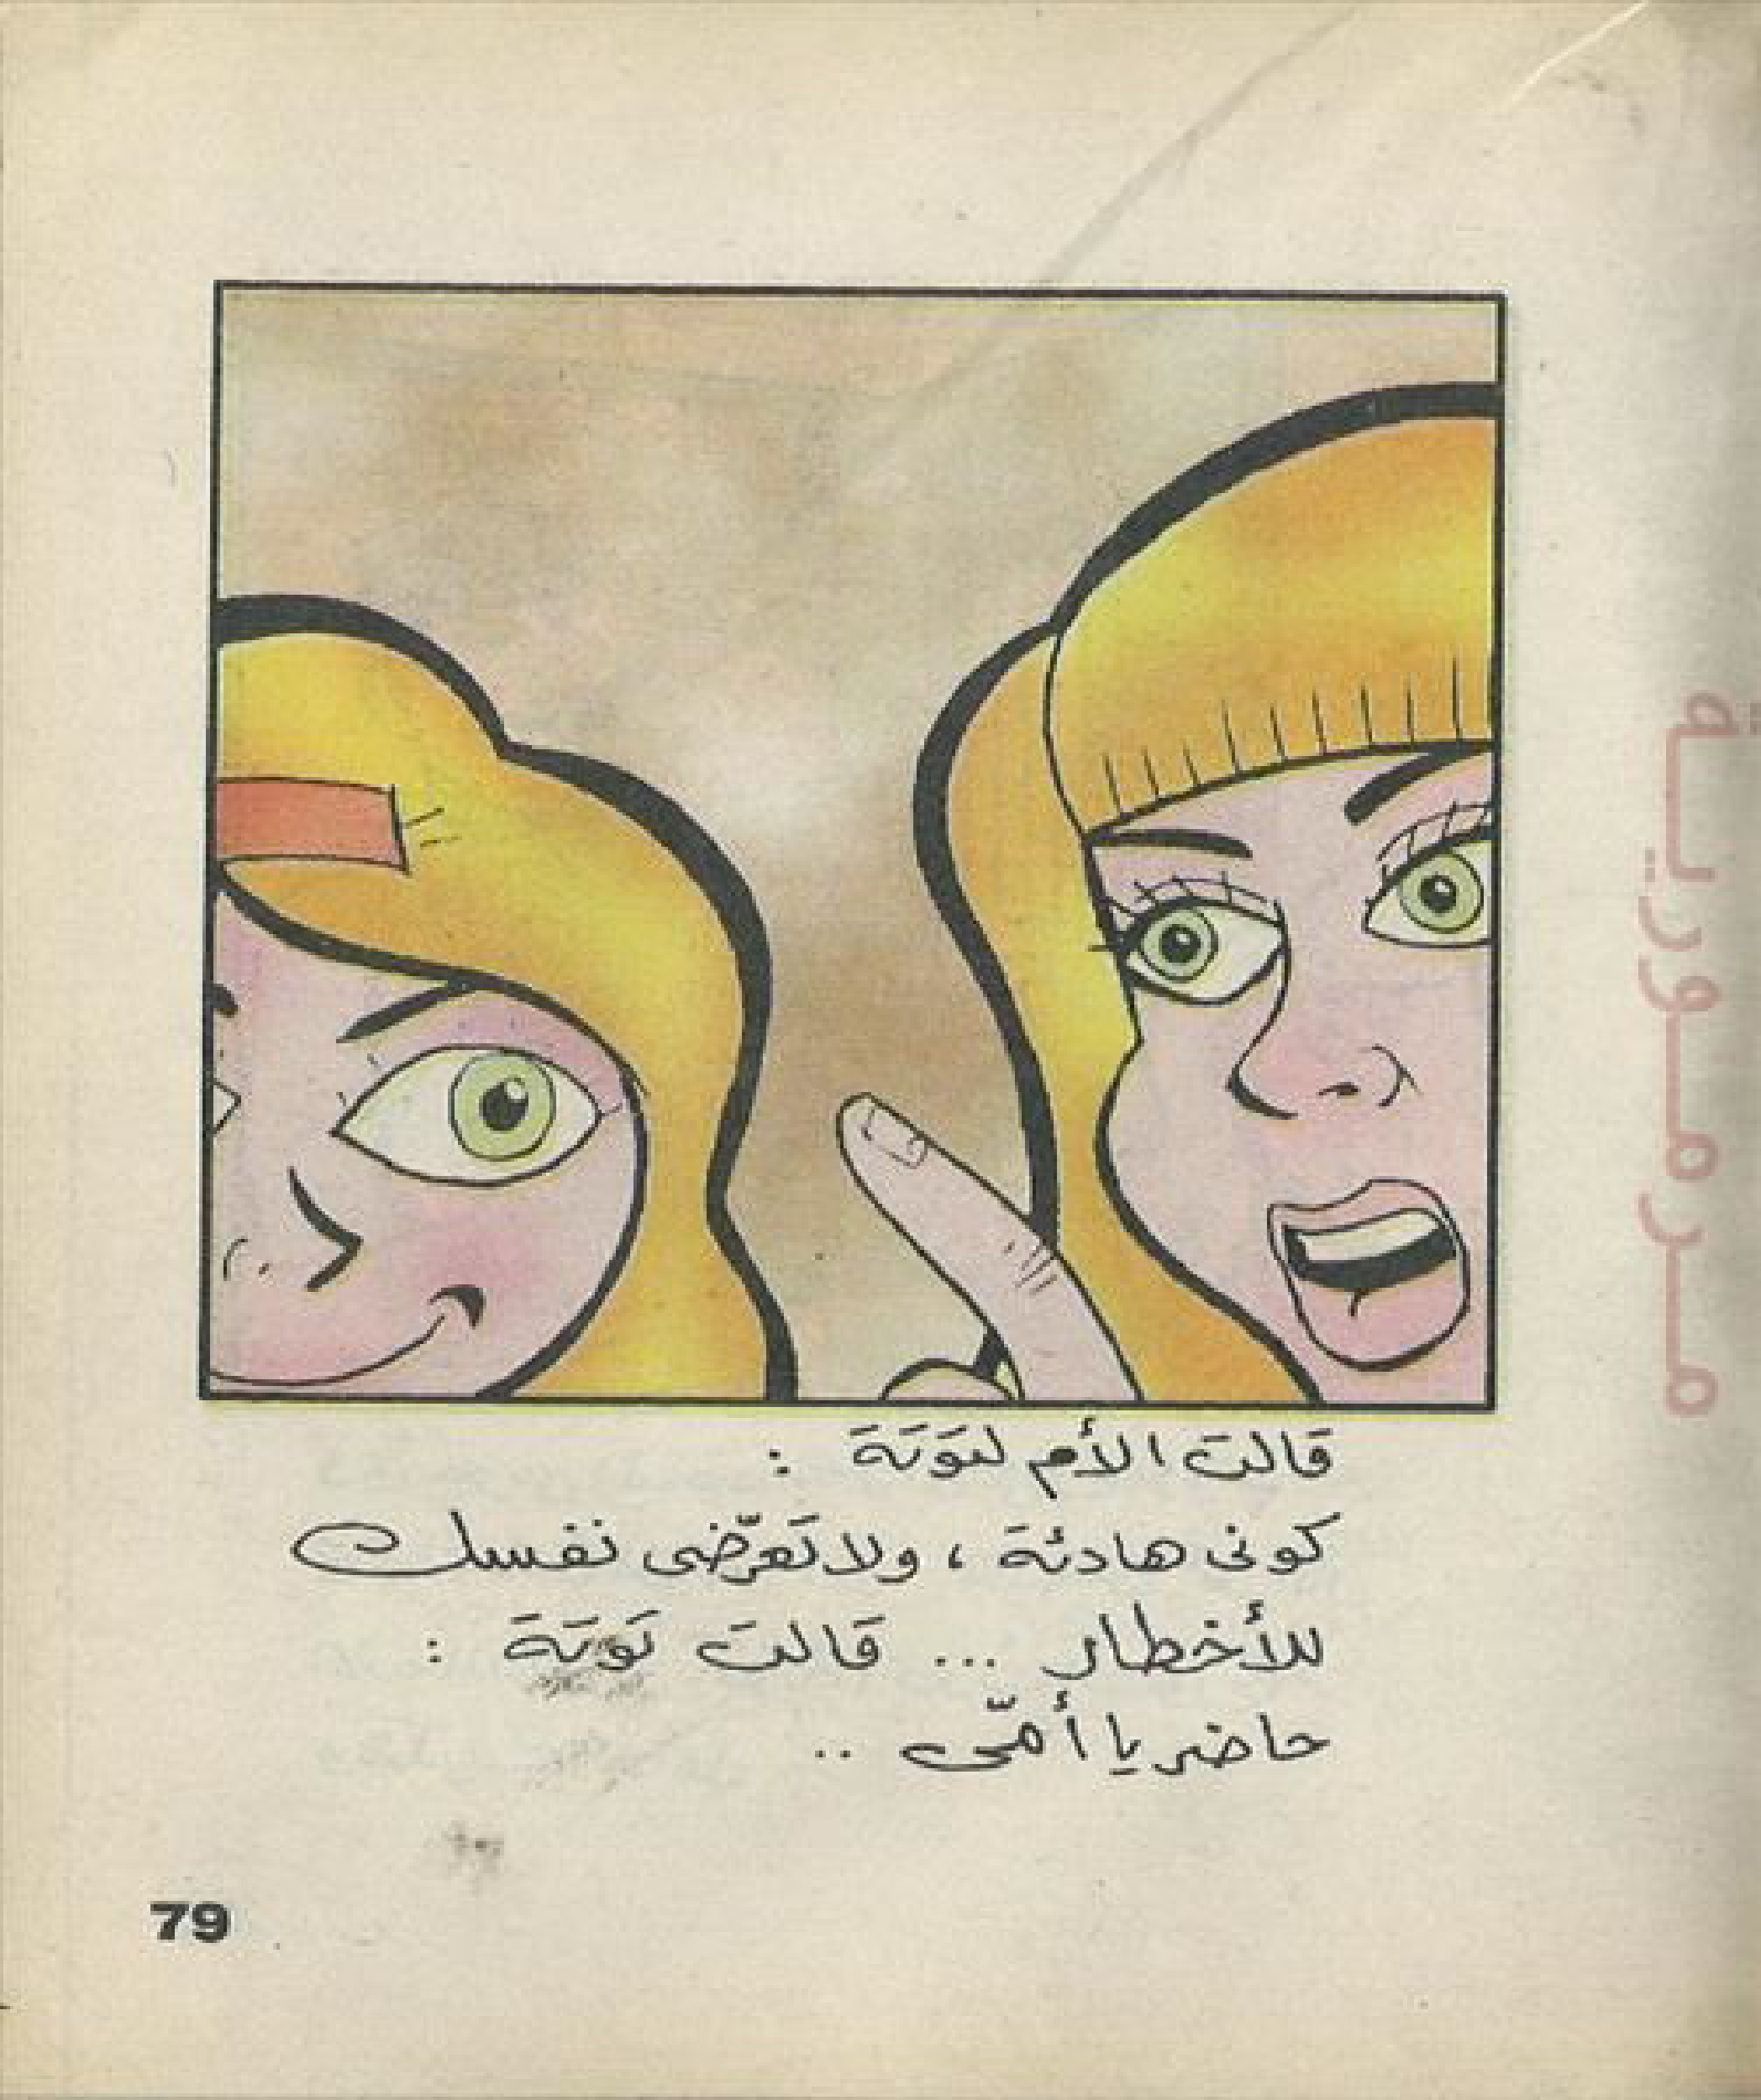 قالت الأم لتوتة :
كونى هادئة ، ولا تعرّضى نفسك
للأخطار ... قالت توتة :
حاضر يا أمّى ..
79
مرمورية